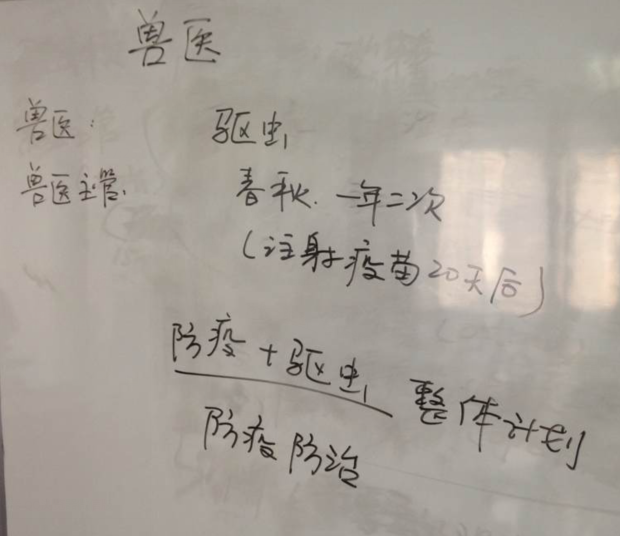 兽医
兽医:
驱虫
兽医主管.
春秋.一年二次
(注射疫苗20天后)
防疫+驱虫
整体计划
防疫防治